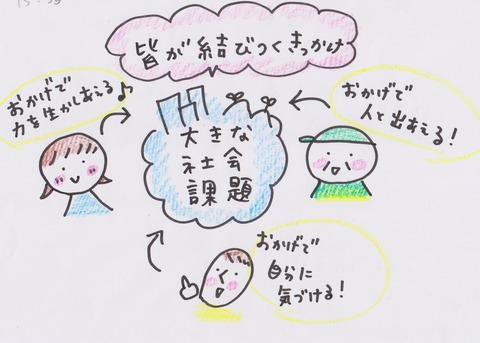 皆が結びつくきっかけ
おかげで
力を生かしあえる♪
おかげで
人と出あえる！
大きな
社会
課題
おかげで
自分に
気づける！